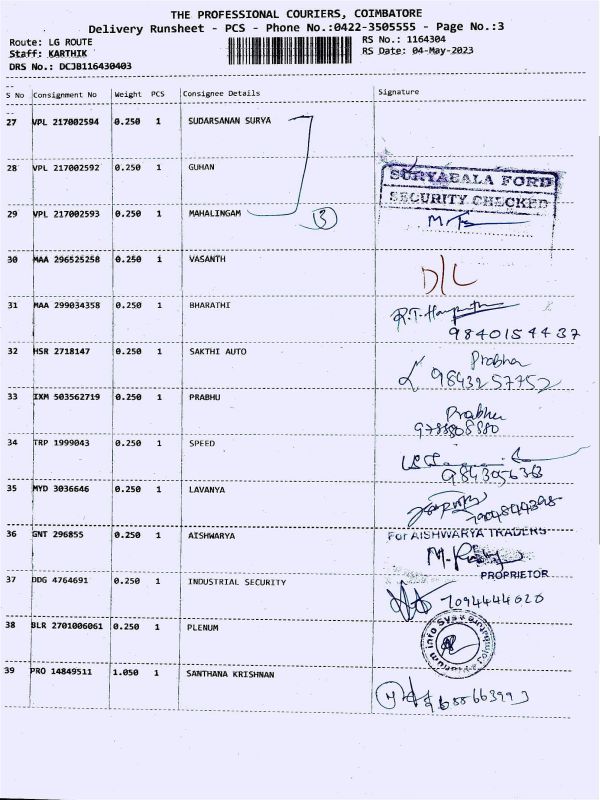 THE PROFESSIONAL COURIERS, COIMBATORE
Delivery Runsheet - PCS - Phone No.:0422-3505555 - Page No.:3
Route: LG ROUTE RS No.: 1164304
Staff: KARTHIK RS Date: 04-May-2023
DRS No.: DCJB116430403
S No Consignment No Weight PCS Consignee Details Signature
27 VPL 217002594 0.250 1 SUDARSANAN SURYA
28 VPL 217002592 0.250 1 GUHAN
SURYABALA FORD
SECURITY CHECKED
29 VPL 217002593 0.250 1 MAHALINGAM
3
30 MAA 296525258 0.250 1 VASANTH
D/L
31 MAA 299034358 0.250 1 BHARATHI
9840154437
32 HSR 2718147 0.250 1 SAKTHI AUTO Prabhu
9843257752
33 IXM 503562719 0.250 1 PRABHU Prabhu
34 TRP 1999043 0.250 1 SPEED
9843056363
35 MYD 3036646 0.250 1 LAVANYA
36 GNT 296855 0.250 1 AISHWARYA For AISHWARYA TRADERS
PROPRIETOR
37 DDG 4764691 0.250 1 INDUSTRIAL SECURITY
7094444020
38 BLR 2701006061 0.250 1 PLENUM
39 PRO 14849511 1.050 1 SANTHANA KRISHNAN